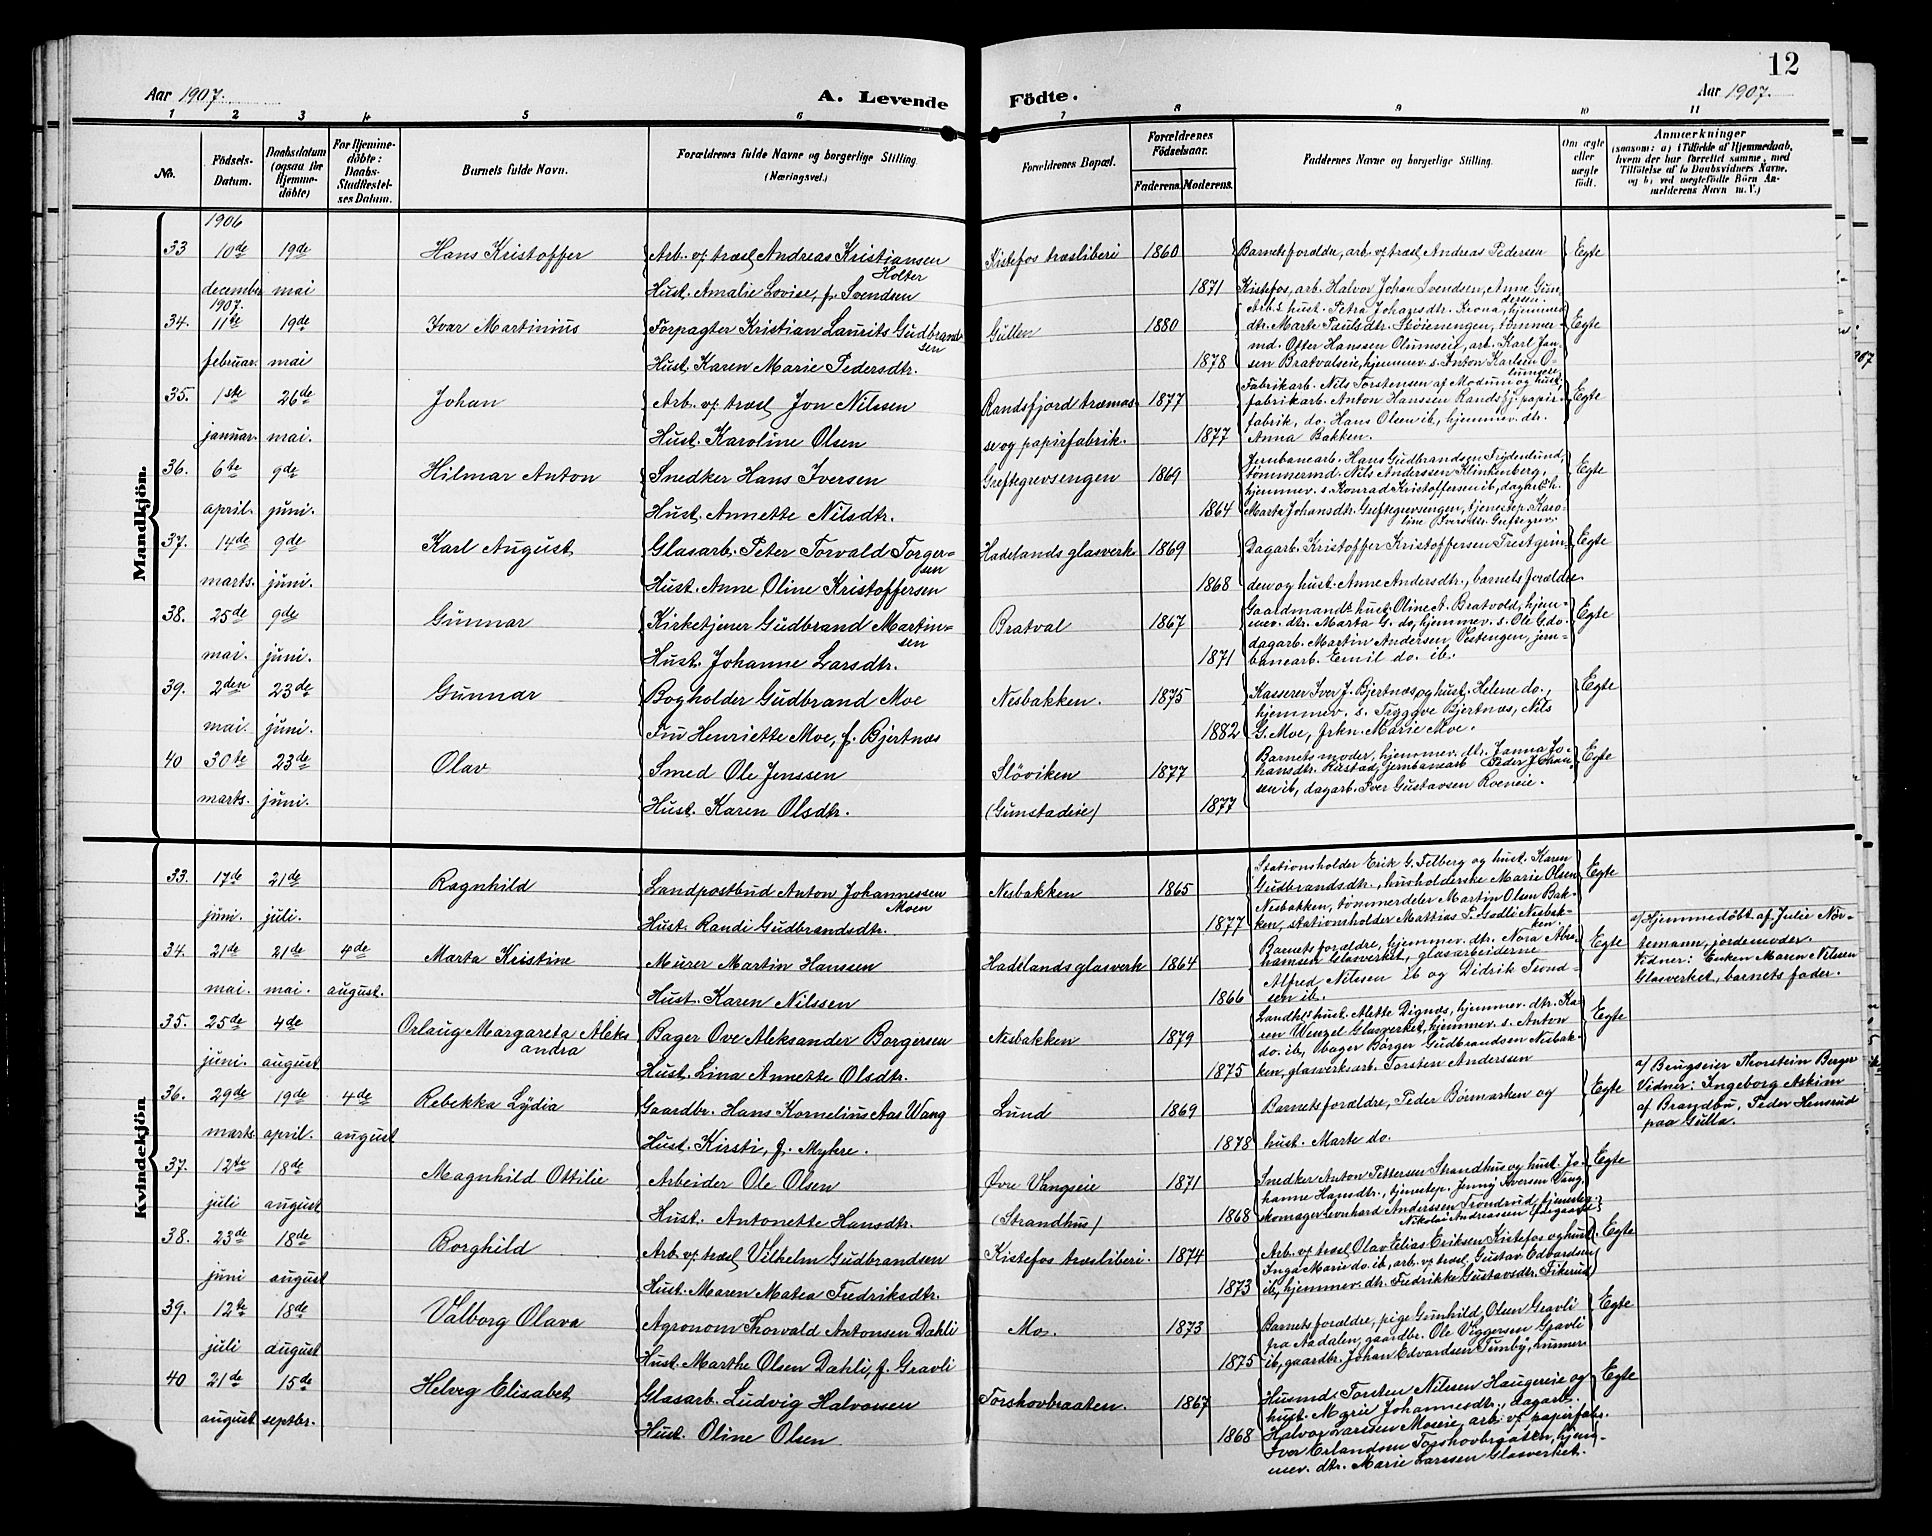 12
Aar 1907. A. Levende Födte. Aar 1907.
1 2 3 4 5 6 7 8 9 10 11
No. Födsels-Datum. Daabsdatum (ogsaa for Hjemme-döbte) For Hjemme-döbte: Daabs-Stadfæstel-ses Datum. Barnets fulde Navn. Forældrenes fulde Navne og borgerlige Stilling. (Næringsvei.) Forældrenes Bopæl. Forældrenes Födselsaar. Faderens. Moderens. Faddernes Navne og borgerlige Stilling. Om ægte eller uægte födt. Anmærkninger (saasom: a) i Tilfælde af Hjemmedaab, hvem der har forrettet samme, med Tilföielse af to Daabsvidners Navne, og b) ved uægtefödte Börn An-melderens Navn m. V.)
Mandkjön.
1906
33 10de 19de Hans Kristoffer Arb. v/ træsl. Andreas Kristiansen Holter Kistefos træsliberi 1860 Barnets forældre, arb. v/ træsl. Andreas Pedersen Egte
december mai Hust. Amalie Lovise, f. Svendsen 1871 Kistefos, arb. Halvor Johan Svendsen, Anne Gundersen.
1907.
34. 11te 19de Ivar Martinius Forpagter Kristian Laurits Gudbrandsen Gullen 1880 Arb.s hust. Petra Johansdtr. Krona, hjemmev. dtr. Marte Paulsdtr. Støienengen, tømmer- Egte
februar. mai Hust. Karen Marie Pedersdtr. 1878 md. Otter Hanssen Olumseie, arb. Karl Jansen Bratvalseie, hjemmev. s. Anton Karlsen Olumseie.
35. 1ste 26de Johan Arb. v/ træsl. Jon Nilssen Randsfjord træmas- 1877 Fabrikarb. Nils Torstensen af Modum og hust., fabrikarb. Anton Hanssen Randsfj. papir- Egte
januar. mai. Hust. Karoline Olsen se og papirfabrik. 1877 fabrik, do. Hans Olsen ib., hjemmev. dtr. Anna Bakken.
36. 6te 9de Hilmar Anton Snedker Hans Iversen Greftegrevsengen 1869 Jernbanearb. Hans Gudbrandsen Frydenlund, tømmermd. Nils Anderssen Klinkenberg, Egte
april. juni. Hust. Annette Nilsdtr. 1864 hjemmev. s. Konrad Kristoffersen ib., dagarb. h. Marta Johansdtr. Greftegrevsengen, tjenestep. Karoline Iversdtr. Greftegrev.
37. 14de 9de Karl August Glasarb. Peter Torvald Torgersen Hadelands glasverk 1869 Dagarb. Kristoffer Kristoffersen Trestgrin- Egte
marts. juni. Hust. Anne Oline Kristoffersen 1868 den og hust. Anne Andersdtr., barnets forældre.
38. 25de 9de Gunnar Kirketjener Gudbrand Martinsen Bratval 1867 Gaardmands hust. Oline A. Bratvold, hjemmev. dtr. Marta G. do, hjemmev. s. Ole G. do. Egte
mai. juni. Hust. Johanne Larsdtr. 1871 dagarb. Martin Andersen Vestengen, jernbanearb. Emil do. ib.
39. 2den 23de Gunnar Bogholder Gudbrand Moe Nesbakken. 1875 Kasserer Iver J. Bjertnæs og hust. Helene do., Egte
mai. juni. Fru Henriette Moe, f. Bjertnæs 1882 hjemmev. s. Tryggve Bjertnæs, Nils G. Moe, frkn. Marie Moe.
40 30te 23de Olav Smed Ole Jenssen Støviken 1877 Barnets moder, hjemmev. dtr. Janna Johansdtr. Kirstad, jernbanearb. Peder Johan- Egte
marts. juni. Hust. Karen Olsdtr. (Gunstadeie) 1877 sen ib., dagarb. Iver Gustavsen Roeneie.
Kvindekjön
33. 17de 21de Ragnhild Landpostbud Anton Johannessen Moen Nesbakken 1865 Stationsholder Erik G. Felberg og hust. Karen Gudbrandsdtr., husholderske Marie Olsen Egte
juni. juli. Hust. Randi Gudbrandsdtr. 1877 Nesbakken, tømmerdeler Martin Olsen Bakken, stationsholder Mattias P. Godli Nesbakken.
34. 21de 21de 4de Marta Kristine Murer Martin Hanssen Hadelands glasverk 1864 Barnets forældre, hjemmev. dtr. Nora Abrahamsen Glasverket, glasarbeiderne Egte a/ Hjemmedøbt af Julie Nortemann, jordemoder.
mai. mai. august. Hust. Karen Nilssen 1866 Alfred Nilssen ib og Didrik Trondsen ib. Vidner: Enken Maren Nilssen Glasverket, barnets fader.
35. 25de 4de Orlaug Margareta Aleksandra Bager Ove Aleksander Borgersen Nesbakken 1879 Landh.s hust. Alette Dignæs, hjemmev. dtr. Karen Wenzel Glasverket, hjemmev. s. Anton Egte
juni. august Hust. Lina Annette Olsdtr. 1875 do. ib., bager Børger Gudbrandsen Nesbakken, glasverksarb. Torsten Anderssen
36. 29de 19de 4de Rebekka Lydia Gaardbr. Hans Kornelius Aas Wang Lund 1869 Barnets forældre, Peder Børmarken og Egte a/ Brugseier Thorstein Berger Vidner: Ingeborg Askim
marts. april. august Hust. Kirsti, f. Myhre. 1878 hust. Marte do. af Brandbu, Peder Hensrud paa Gulla.
37. 12te 18de Magnhild Ottilie Arbeider Ole Olsen Øvre Vangseie 1871 Snedker Anton Pettersen Strandhus og hust. Johanne Hansdtr., tjenestep. Jenny Iversen Vang, Egte
juli august Hust. Antonette Hansdtr. (Strandhus) 1868 skomager Leonhard Anderssen Trondrud, tjenesteg. Nikolai Andreassen
38. 23de 18de Borghild Arb. v/ træsl. Vilhelm Gudbrandsen Kistefos træsliberi. 1874 Arb. v/ træsl. Olav Elias Eriksen Kistefos og hust. Inga Marie do. ib., arb. v/ træsl. Gustav Edvardsen Egte
juni august Hust. Maren Matea Fredriksdtr. 1873 ib., hjemmev. dtr. Fredrikke Gustavsdtr. Fikerud
39. 12te 18de Valborg Olava Agronom Thorvald Antonsen Dahli Mo. 1873 Barnets forældre, pige Gunhild Olsen Gravli fra Aadalen, gaardbr. Ole Viggersen Gravli Egte
juli august Hust. Marthe Olsen Dahli, f. Gravli 1875 ib., gaardbr. Johan Edvardsen Tunby, murer
40 21de 15de Helveg Elisabet Glasarb. Ludvig Halvorsen Torshovbraaten. 1867 Husmd. Torsten Nilssen Haugereie og hust. Marie Johannesdtr., dagarb. Egte
august septbr. Hust. Oline Olsen 1868 Halvor Larssen Moseie, arb. v/ papirfabr. Iver Erlandsen Torshovbraaten, hjemmev. dtr. Marie Larssen Glasverket.